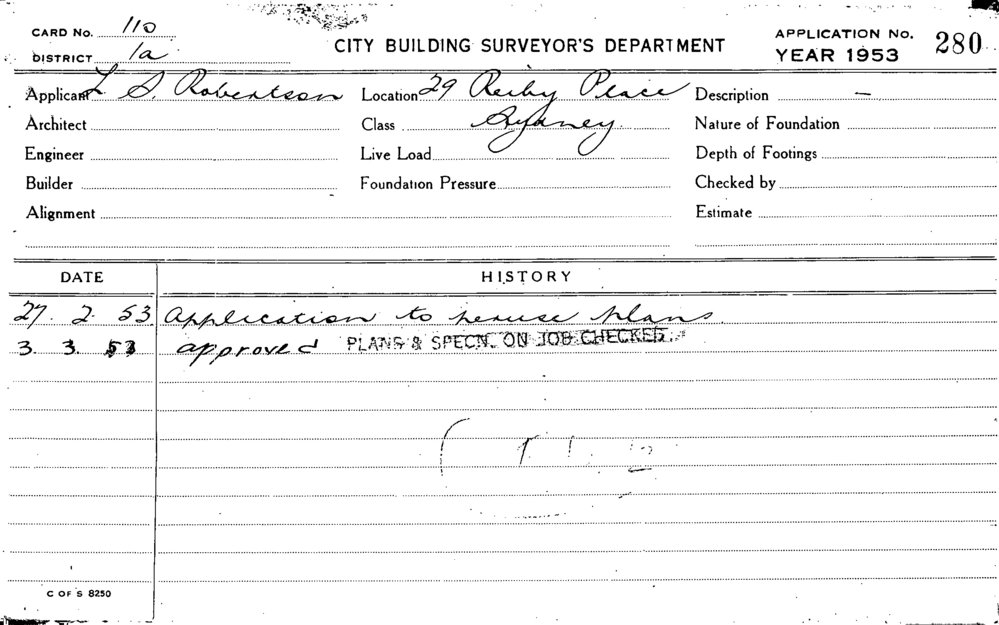 CARD No. 110
DISTRICT 1a
CITY BUILDING SURVEYOR'S DEPARTMENT
APPLICATION No.
YEAR 1953
280
Applicant L S. Robertson Location 29 Reiby Place Description —
Architect Class Sydney. Nature of Foundation
Engineer Live Load Depth of Footings
Builder Foundation Pressure Checked by
Alignment Estimate
DATE HISTORY
27. 2. 53 Application to peruse plans.
3. 3. 53 approved PLANS & SPECN. ON JOB CHECKED.
C OF S 8250